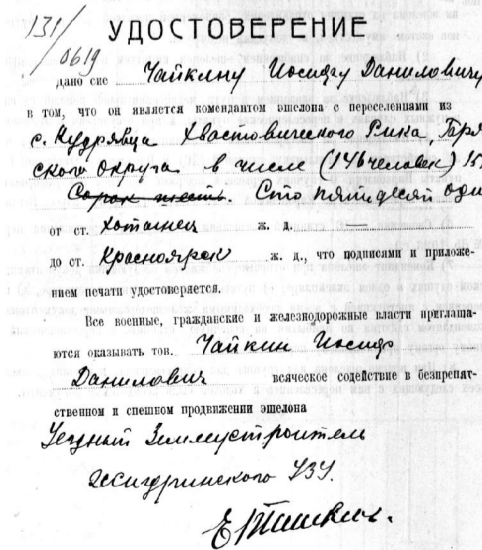 131/
0619
УДОСТОВЕРЕНИЕ
дано сие Чайкину Иосифу Даниловичу
в том, что он является комендантом эшелона о переселенцами из
с. Кудрявца Хвастовического Рика,
ского округа в числе (146 человек)
Сорок шесть. Сто пятидесят
от ст. Хотынец ж. д. —
до ст. Красноярск ж. д., что подписями и приложе-
нием печати удостоверяется.
Все военные, гражданские и железнодорожные власти приглаша-
ются оказывать тов. Чайкин Иосиф
Данилович всяческое содействие в безпрепят-
ственном и спешном продвижении эшелона
Уездный Землеустроитель
Жиздринского УЗУ.